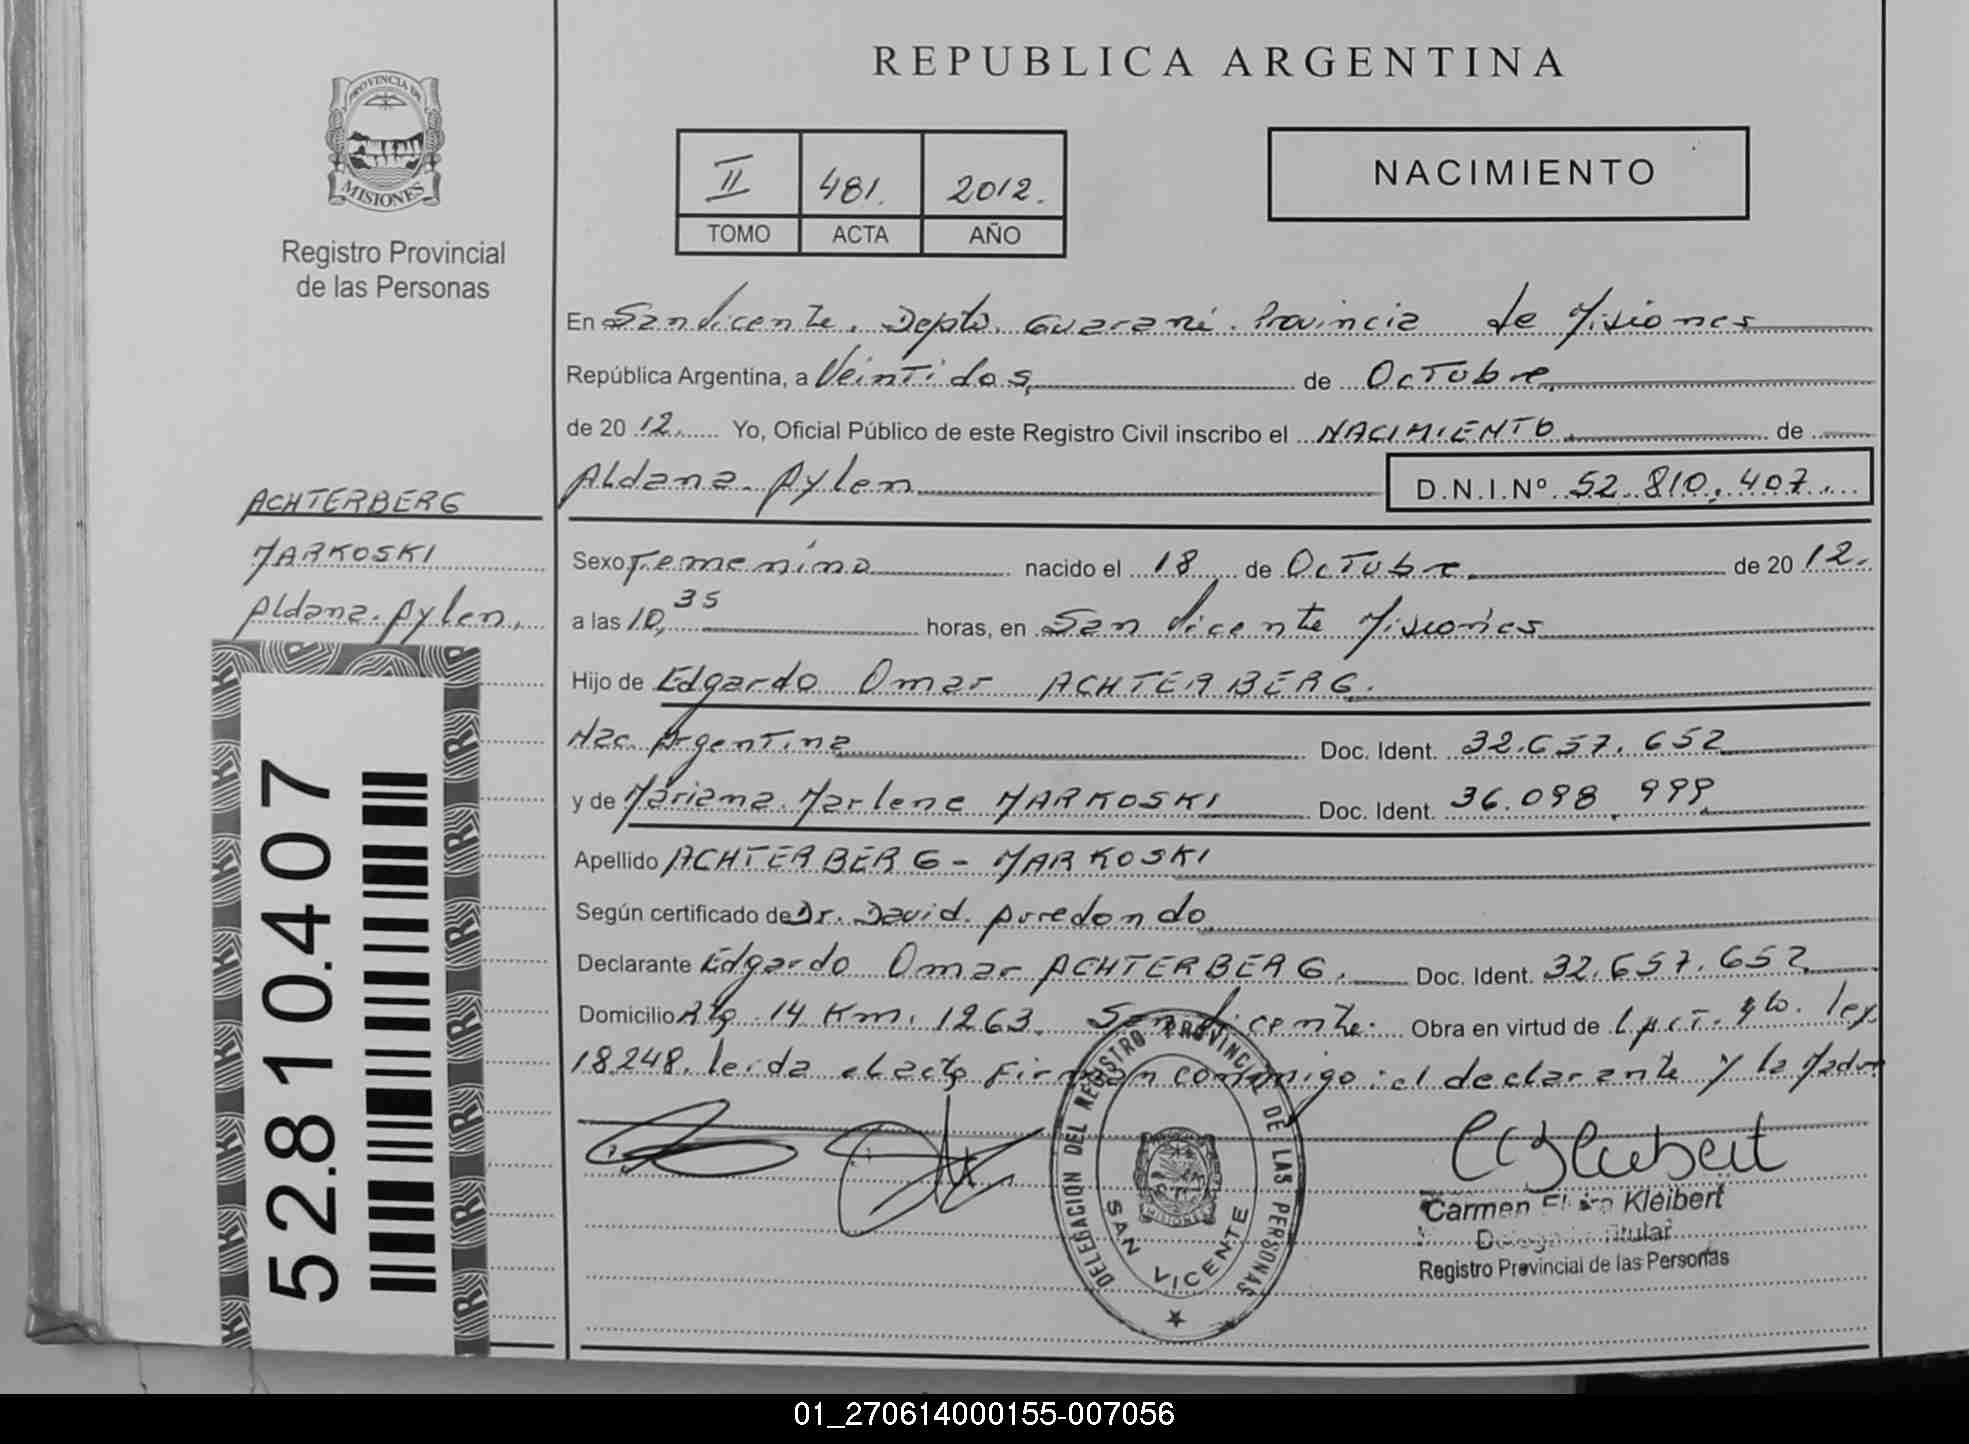 REPUBLICA ARGENTINA
PROVINCIA DE
MISIONES
Registro Provincial
de las Personas
II 481. 2012.
TOMO ACTA AÑO
NACIMIENTO
En San Vicente. Depto. Guaraní. Provincia de Misiones
República Argentina, a Veintidos, de Octubre
de 20 12. Yo, Oficial Público de este Registro Civil inscribo el NACIMIENTO de
Aldana. Aylen D.N.I.Nº 52.810.407
ACHTERBERG
MARKOSKI
Aldana. Aylen,
52.810.407
Sexo Femenino nacido el 18 de Octubre de 20 12.
a las 10,35 horas, en San Vicente Misiones
Hijo de Edgardo Omar ACHTERBERG.
Nac. Argentina Doc. Ident. 32.657.652
y de Mariana. Marlene MARKOSKI Doc. Ident. 36.098.999
Apellido ACHTERBERG - MARKOSKI
Según certificado de Dr. David. Arredondo
Declarante Edgardo Omar ACHTERBERG. Doc. Ident. 32.657.652
Domicilio Rta. 14 Km. 1263. San Vicente. Obra en virtud de 4to. ley
18.248. leida el acta Firman conmigo: el declarante y la Madre
DELEGACION DEL REGISTRO PROVINCIAL DE LAS PERSONAS
SAN VICENTE
MISIONES
Carmen Kleibert
Titular
Registro Provincial de las Personas
01_270614000155-007056